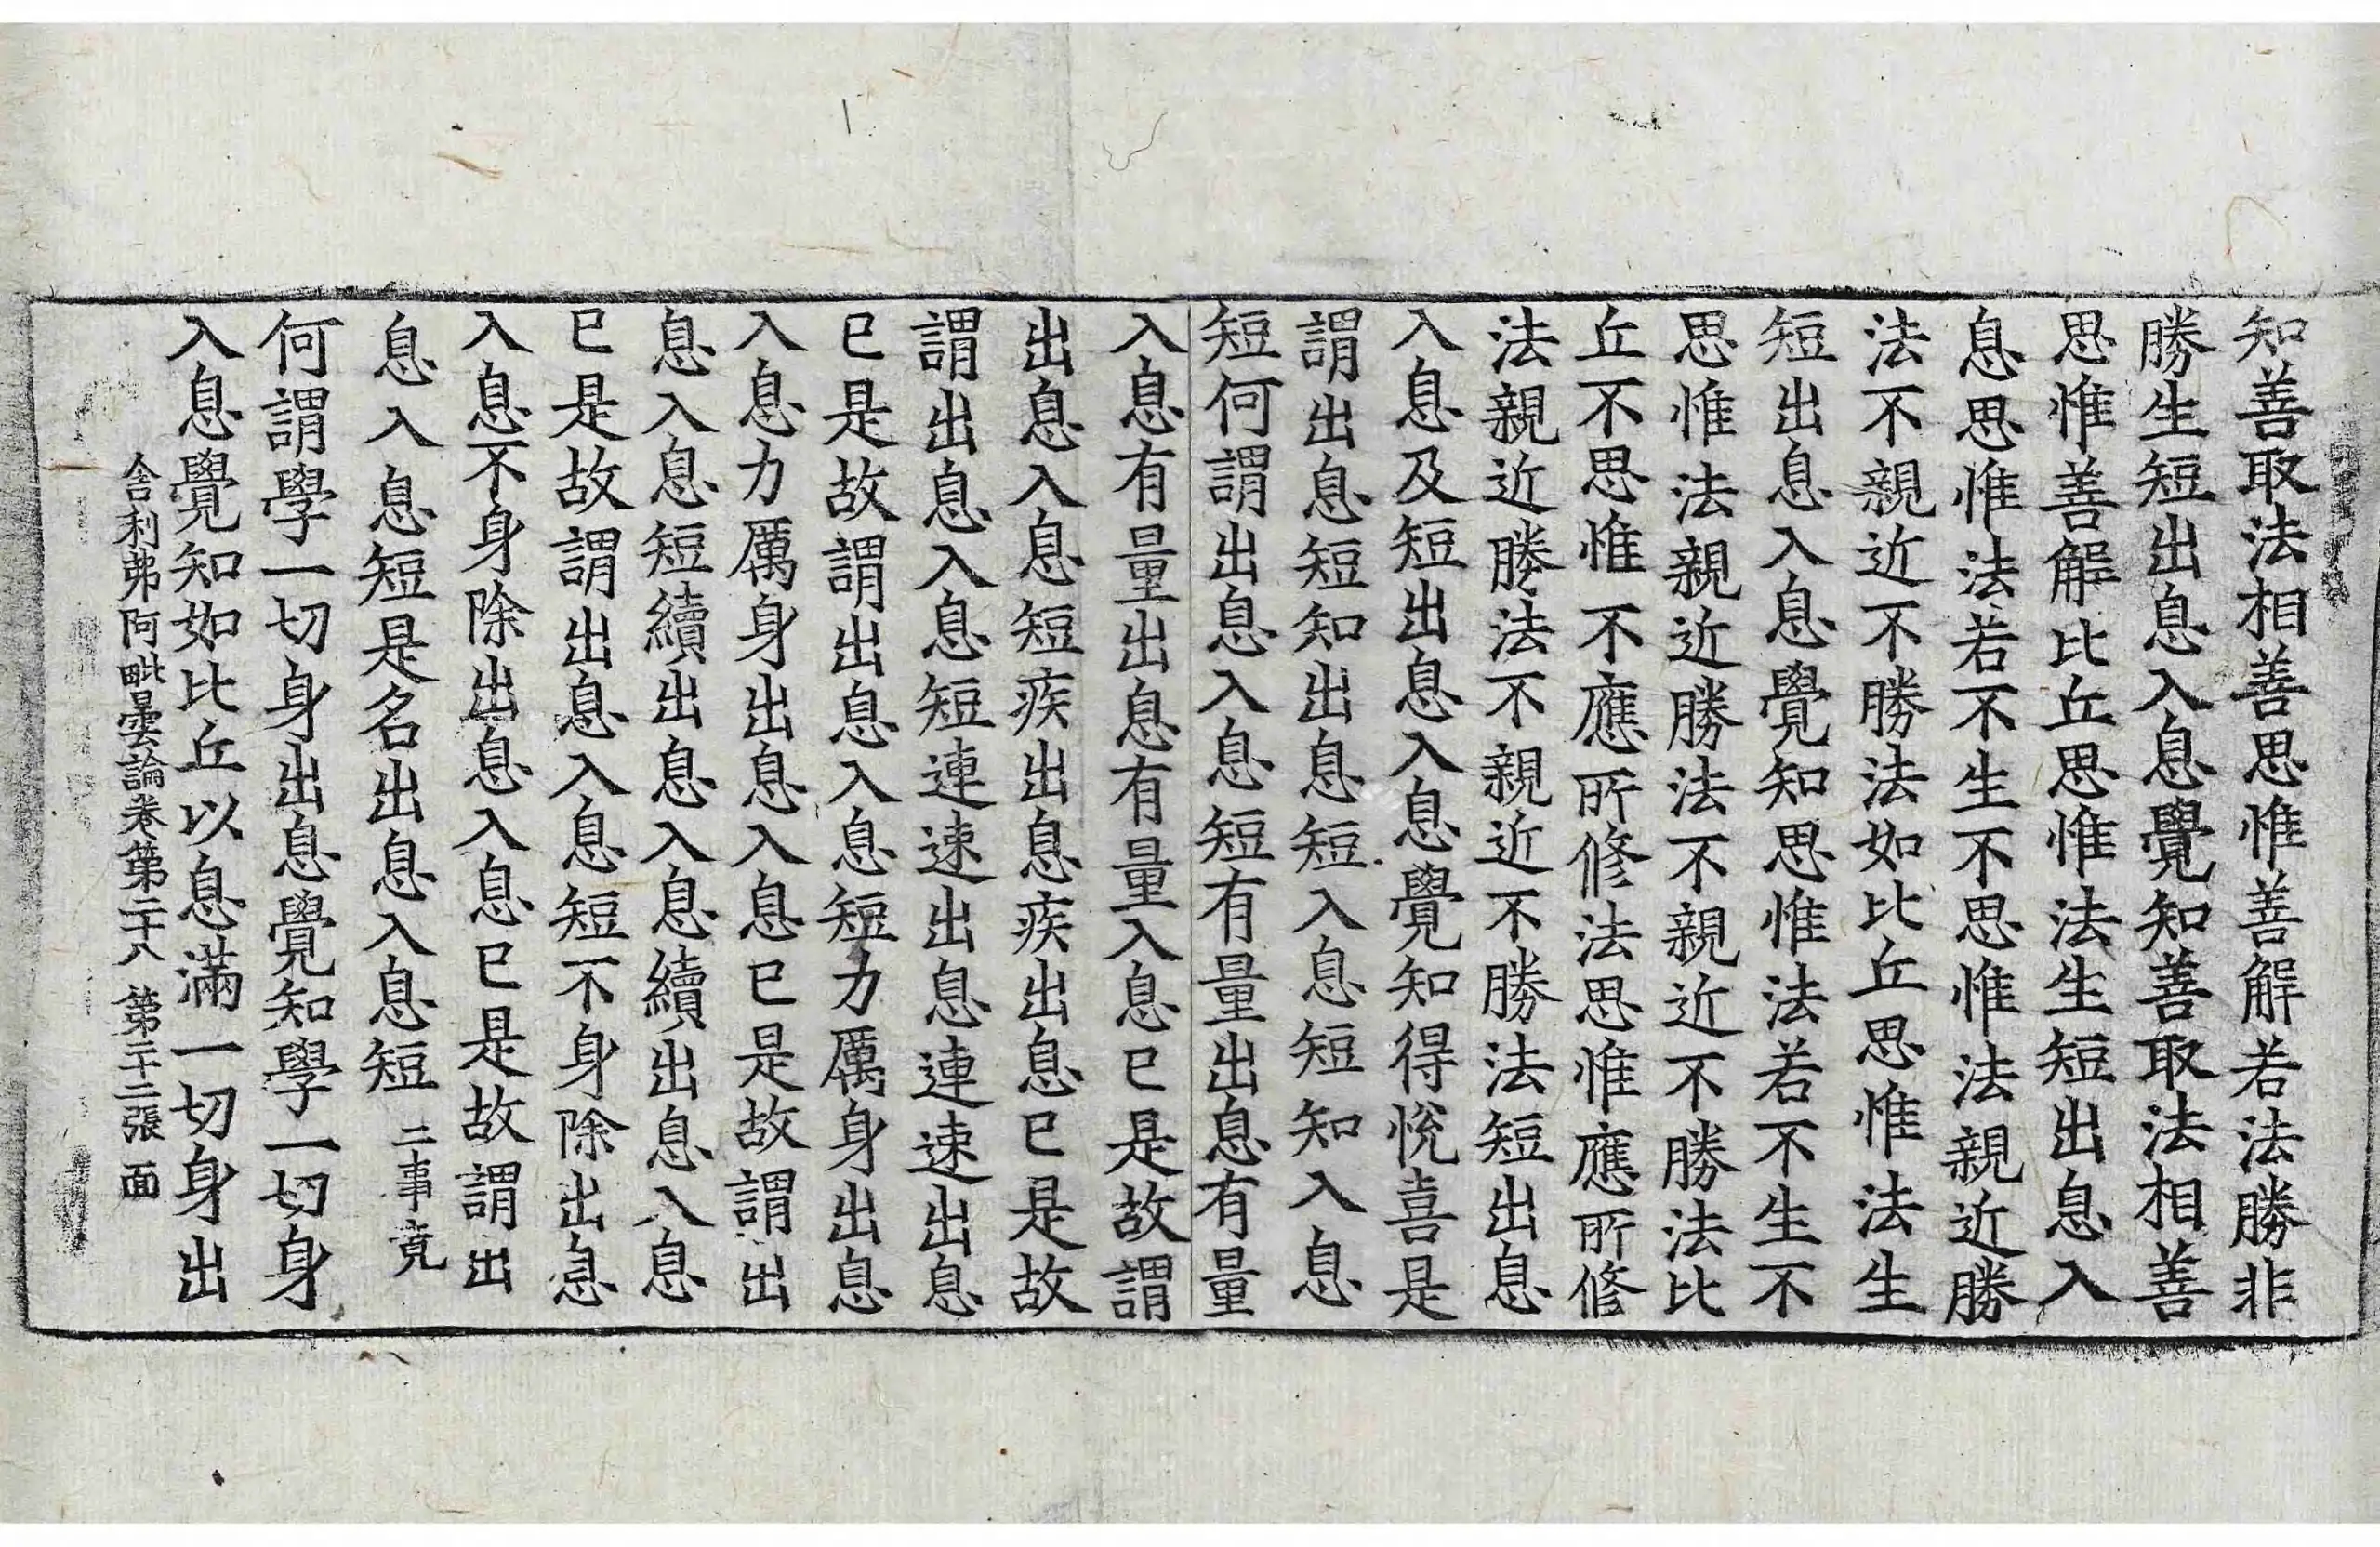 知善取法相善思惟善解若法勝非
勝生短出息入息覺知善取法相善
思惟善解比丘思惟法生短出息入
息思惟法若不生不思惟法親近勝
法不親近不勝法如比丘思惟法生
短出息入息覺知思惟法若不生不
思惟法親近勝法不親近不勝法比
丘不思惟不應所修法思惟應所修
法親近勝法不親近不勝法短出息
入息及短出息入息覺知得悅喜是
謂出息短知出息短入息短知入息
短何謂出息入息短有量出息有量
入息有量出息有量入息已是故謂
出息入息短疾出息疾出息已是故
謂出息入息短連速出息連速出息
已是故謂出息入息短力厲身出息
入息力厲身出息入息已是故謂出
息入息短續出息入息續出息入息
已是故謂出息入息短不身除出息
入息不身除出息入息已是故謂出
息入息短是名出息入息短 二事竟
何謂學一切身出息覺知學一切身
入息覺知如比丘以息滿一切身出
舍利弗阿毗曇論卷第二十八 第二十二張 面